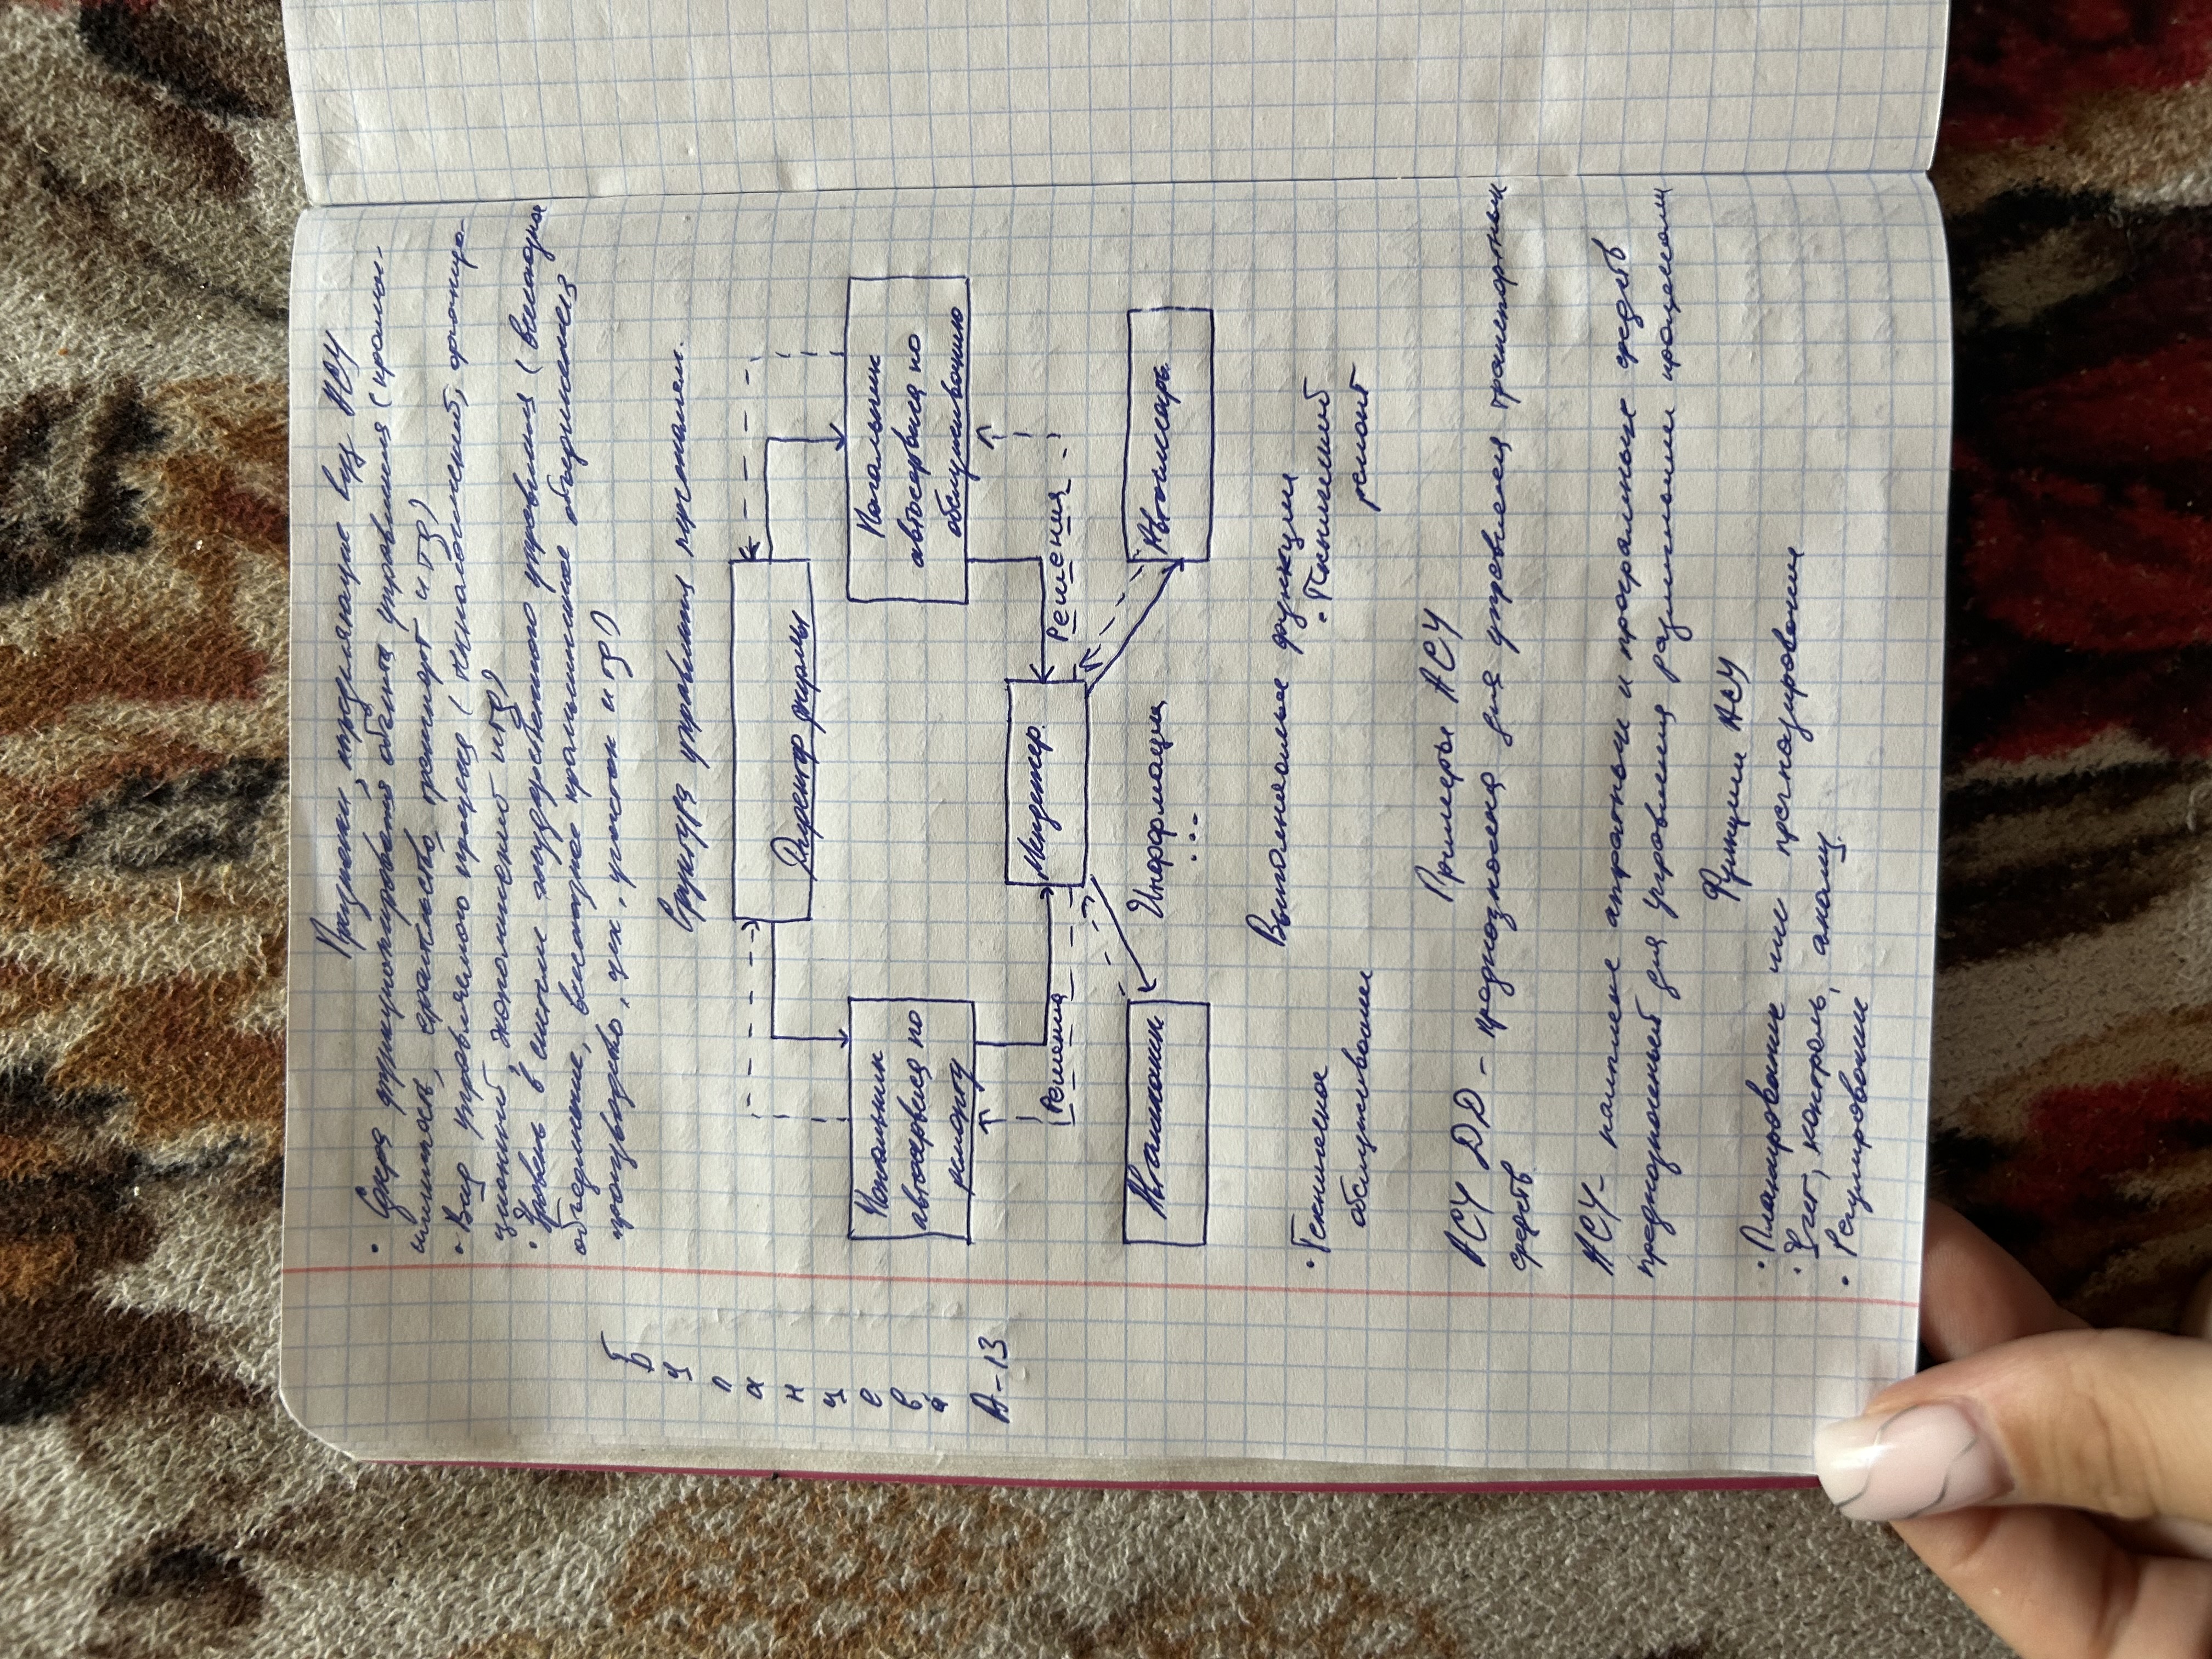 Признаки, определяющие вид АСУ
• Сфера функционирования объекта управления (промыш-
ленность, строительство, транспорт и тд)
• Вид управляемого процесса (технологический, организа-
ционный, экономический и тд)
• Уровень в системе государственного управления (
объединение, всесоюзное промышленное объединение
производство, цех, участок и тд)
Структура управления персоналом.
Директор фирмы
Начальник
автосервиса по
ремонту
Начальник
автосервиса по
обслуживанию
Менеджер.
Решения
Решения
Информация
...
Автомеханик
Автослесарь
Выполняемые функции
• Техническое
обслуживание
• Технический
ремонт
Примеры АСУ
АСУ ДД – предназначена для управления транспортных
средств
АСУ – комплекс аппаратных и программных средств
предназначенный для управления различными процессами
Функции АСУ
• Планирование или прогнозирование
• Учет, контроль, анализ
• Регулирование
Буланцева
А-13